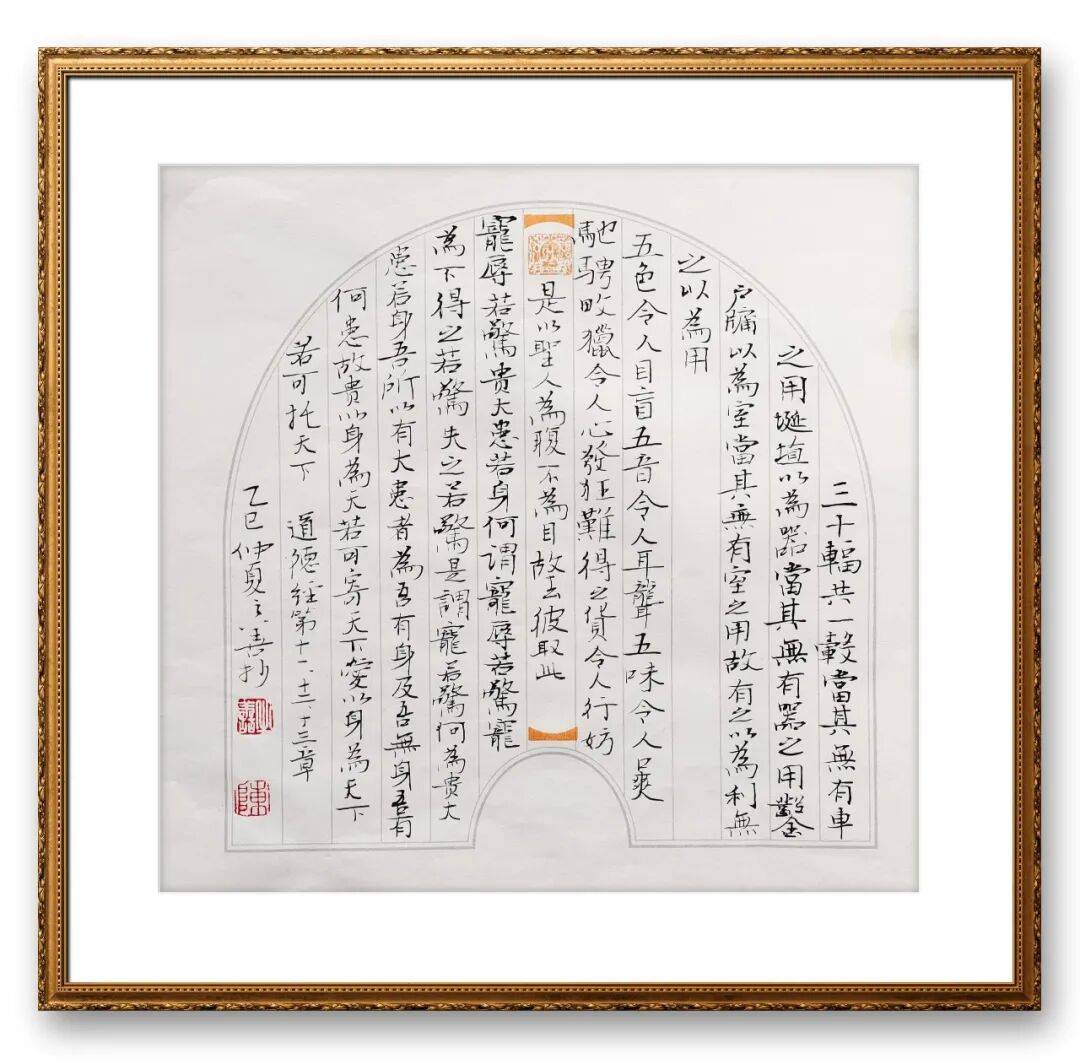 三十輻共一轂當其無有車
之用埏埴以為器當其無有器之用鑿
戶牖以為室當其無有室之用故有之以為利無
之以為用
五色令人目盲五音令人耳聾五味令人口爽
馳騁畋獵令人心發狂難得之貨令人行妨
是以聖人為腹不為目故去彼取此
寵辱若驚貴大患若身何謂寵辱若驚寵
為下得之若驚失之若驚是謂寵若驚何為貴大
患若身吾所以有大患者為吾有身及吾無身吾有
何患故貴以身為天若可寄天下愛以身為天下
若可托天下 道德經第十一、十二、十三章
乙巳仲夏善抄
陳